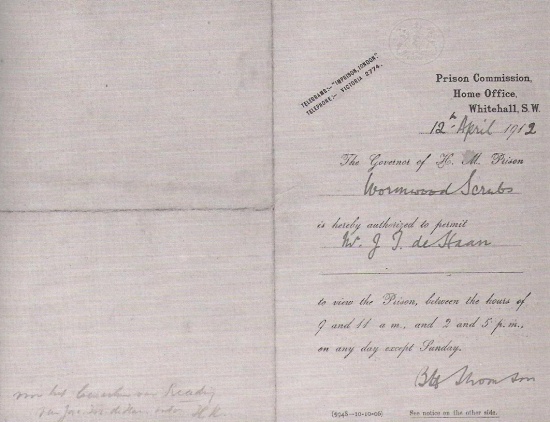 TELEGRAMS:- "IMPRISON, LONDON".
TELEPHONE:- VICTORIA 2774.
Prison Commission,
Home Office,
Whitehall, S.W.
12th April 1912
The Governor of H. M. Prison
Wormwood Scrubs
is hereby authorized to permit
Mr. J. I. de Haan
to view the Prison, between the hours of
9 and 11 a.m., and 2 and 5 p.m.,
on any day except Sunday.
Thomson
(5948-10-10-06) See notice on the other side.
voor het van Reading
H.K.